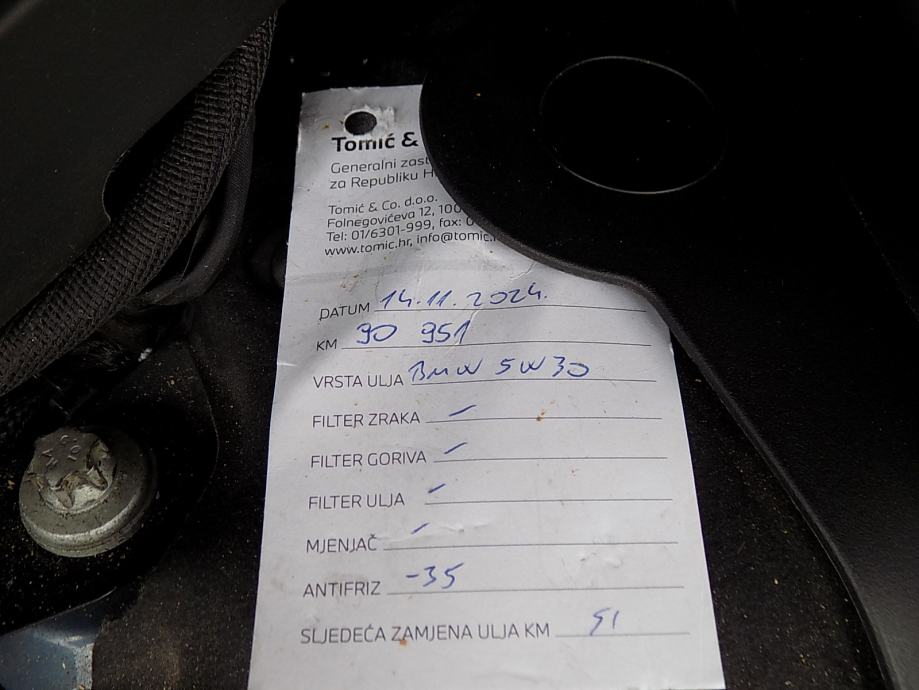 Tomić &
Generalni zast
za Republiku H
Tomić & Co. d.o.o.
Folnegovićeva 12, 100
Tel: 01/6301-999, fax: 0
www.tomic.hr, info@tomic.
DATUM 14.11.2024.
KM 90 951
VRSTA ULJA BMW 5W30
FILTER ZRAKA –
FILTER GORIVA –
FILTER ULJA –
MJENJAČ –
ANTIFRIZ -35
SLJEDEĆA ZAMJENA ULJA KM SI